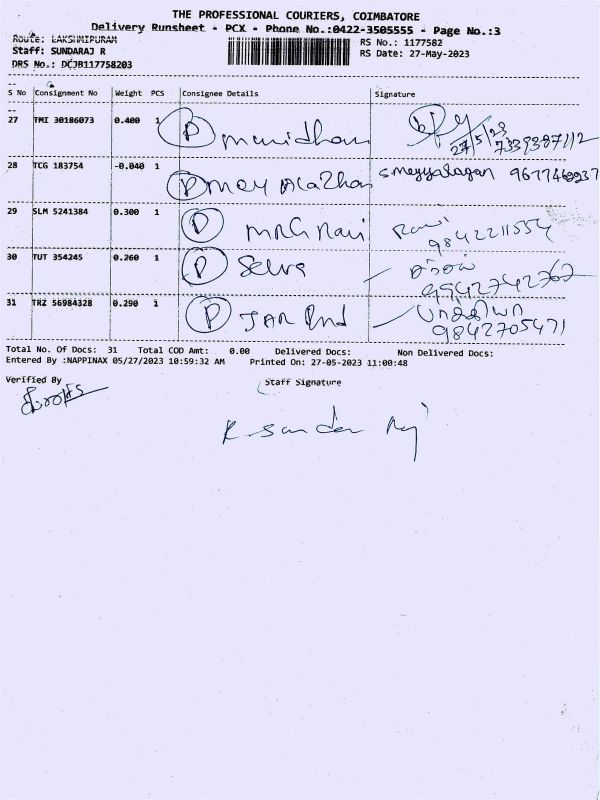 THE PROFESSIONAL COURIERS, COIMBATORE
Delivery Runsheet - PCX - Phone No.:0422-3505555 - Page No.:3
Route: LAKSHMIPURAM RS No.: 1177582
Staff: SUNDARAJ R RS Date: 27-May-2023
DRS No.: DCJB117758203
S No Consignment No Weight PCS Consignee Details Signature
27 TMI 30186073 0.400 1 P manidhan 27/5/23 7339387112
28 TCG 183754 -0.040 1 P mey Alazhan s meyyalagan 9677468937
29 SLM 5241384 0.300 1 P MRG Ravi Ravi
9842211554
30 TUT 354245 0.260 1 P Selva
9942742767
31 TRZ 56984328 0.290 1 P JAR
9842705471
Total No. Of Docs: 31 Total COD Amt: 0.00 Delivered Docs: Non Delivered Docs:
Entered By :NAPPINAX 05/27/2023 10:59:32 AM Printed On: 27-05-2023 11:00:48
Verified By Staff Signature
K. Sundar Raj